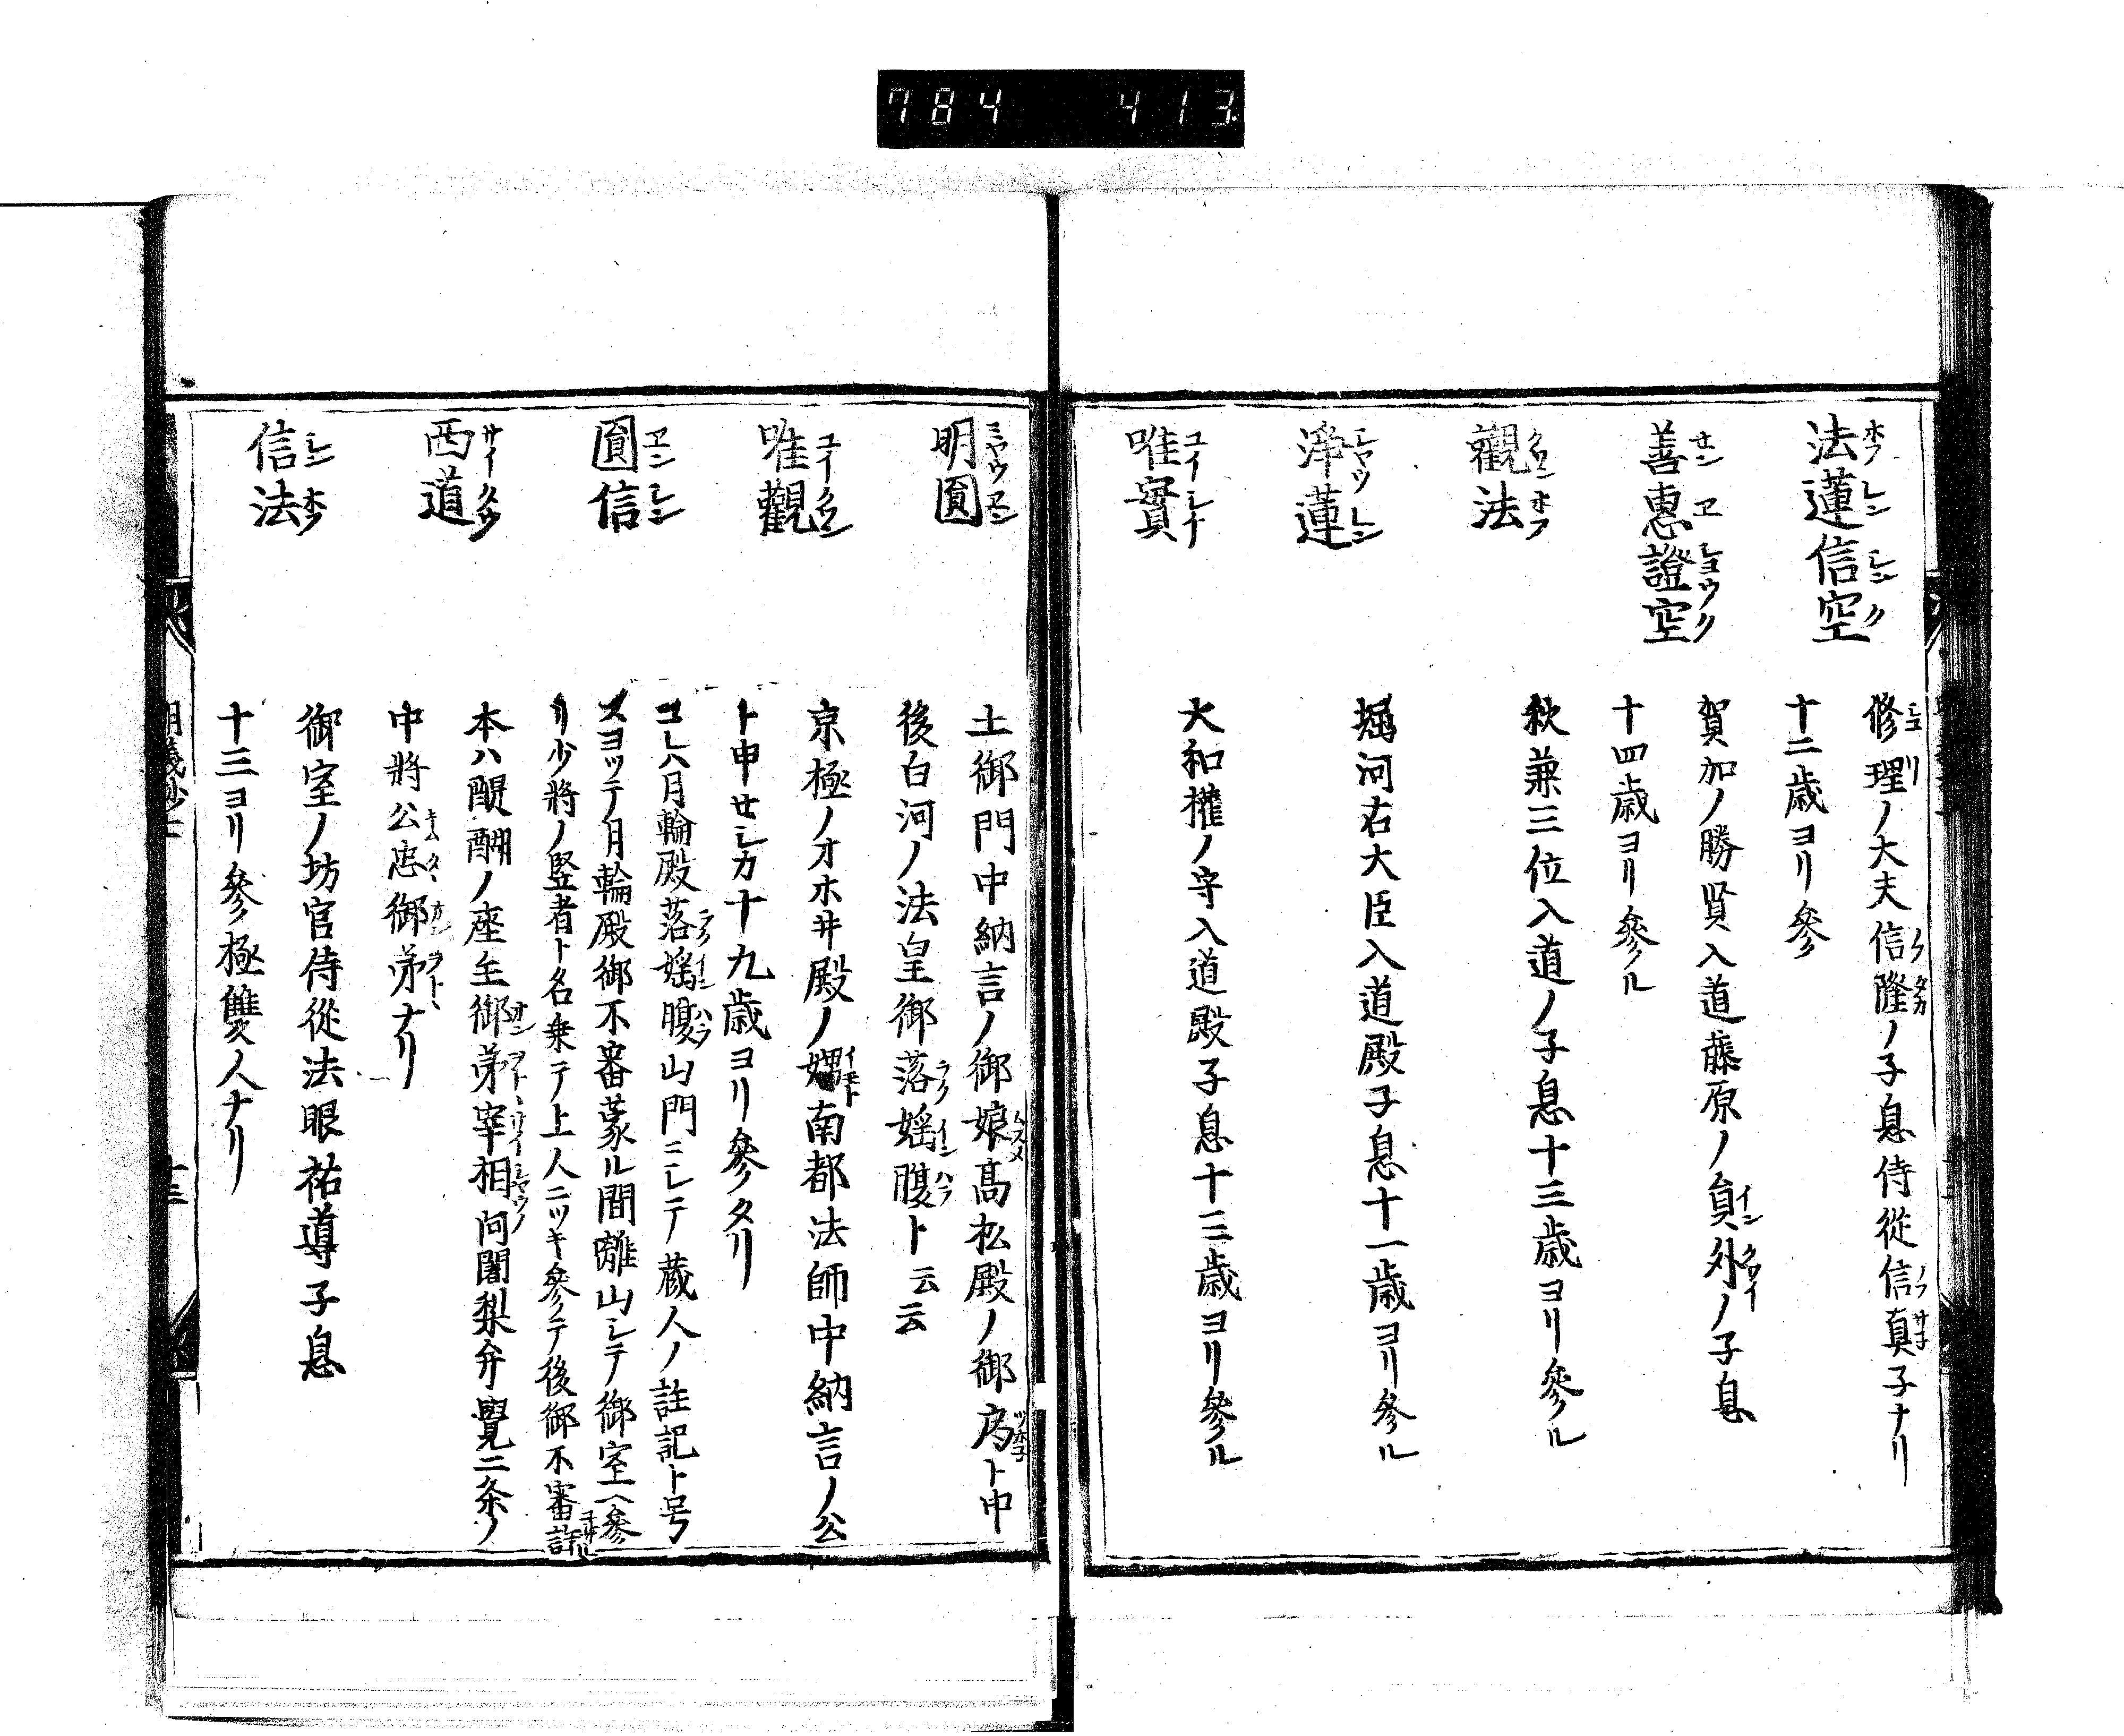 784 413
法蓮信空
修理ノ大夫信隆ノ子息侍從信真子ナリ
十二歳ヨリ參
善惠證空
賀加ノ勝賢入道藤原ノ負外ノ子息
十四歳ヨリ參ル
觀法
秋兼三位入道ノ子息十三歳ヨリ參ル
淨蓮
堀河右大臣入道殿子息十一歳ヨリ參ル
唯實
大和權ノ守入道殿子息十三歳ヨリ參ル
明圓
土御門中納言ノ御娘髙松殿ノ御局ト申
後白河ノ法皇御落婬腹ト云云
唯觀
京極ノオホ井殿ノ娚南都法師中納言ノ公
ト申セシカ十九歳ヨリ參タリ
圓信
コレハ月輪殿落婬腹山門ニシテ蔵人ノ註記ト号
スヨッテ月輪殿御不審蒙ル間離山シテ御室ヘ參
リ少將ノ竪者ト名乗テ上人ニツキ參テ後御不審許
西道
本ハ醍醐ノ座主御弟宰相阿闍梨弁覺二条ノ
中將公忠御弟ナリ
信法
御室ノ坊官侍從法眼祐導子息
十三ヨリ參極雙人ナリ